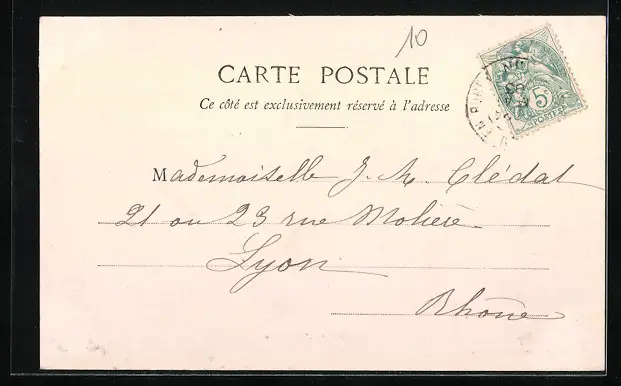 10
CARTE POSTALE
Ce côté est exclusivement réservé à l'adresse
5
POSTES
Mademoiselle J. M. Clédat
21 ou 23 rue Molière
Lyon
Rhône